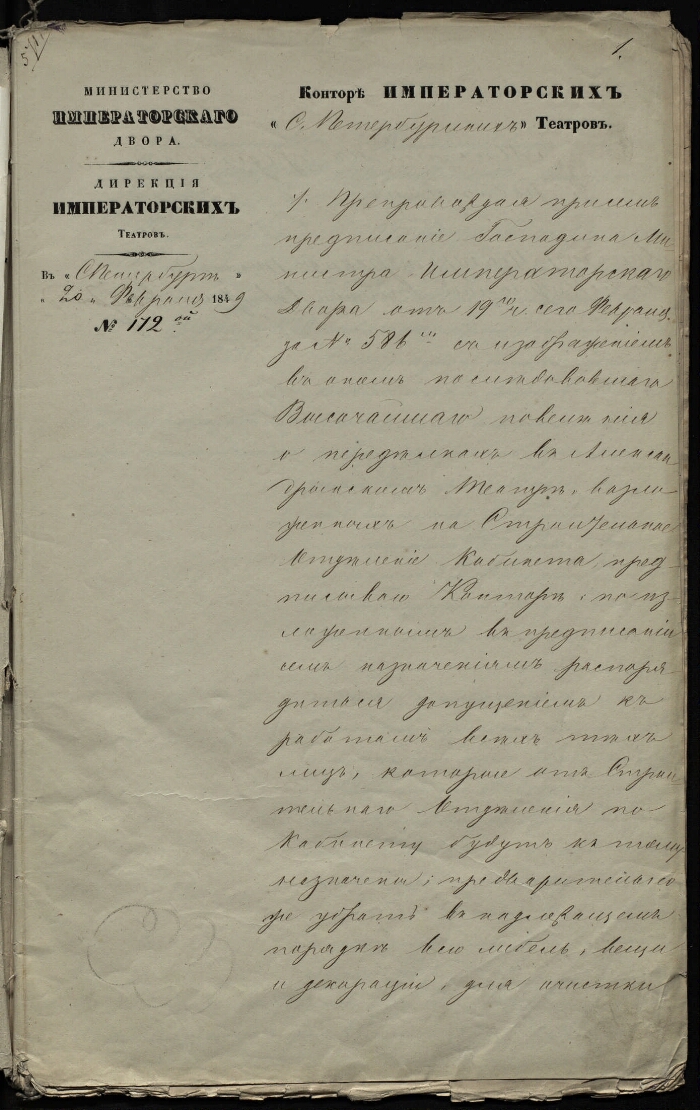 5/11
1.
МИНИСТЕРСТВО
ИМПЕРАТОРСКАГО
ДВОРА.
ДИРЕКЦІЯ
ИМПЕРАТОРСКИХЪ
ТЕАТРОВЪ.
Въ « С. Петербургѣ »
« 20 » Февраля 1849
№ 172ой
Конторѣ ИМПЕРАТОРСКИХЪ
« С. Петербургскихъ » Театровъ.
Препровождая присемъ
предписаніе Господина Ми-
нистра Императорскаго
Двора отъ 19го ч. сего Февраля
за № 586мъ съ изображеніемъ
въ ономъ послѣдовавшаго
Высочайшаго повелѣнія
о передѣлкахъ въ Алексан
дринскомъ Театрѣ, возло
женныхъ на Строительное
Отдѣленіе Кабинета, пред
писываю Конторѣ: по из
ложеннымъ въ предписаніи
семъ назначеніямъ распоря
диться допущеніемъ къ
работамъ всѣхъ тѣхъ
лицъ, которые отъ Строи
тельнаго Отдѣленія по
Кабинету будутъ къ тому
назначены; предварительно
же убрать въ надлежащемъ
порядкѣ всю мебель, вещи
и декораціи, для очистки